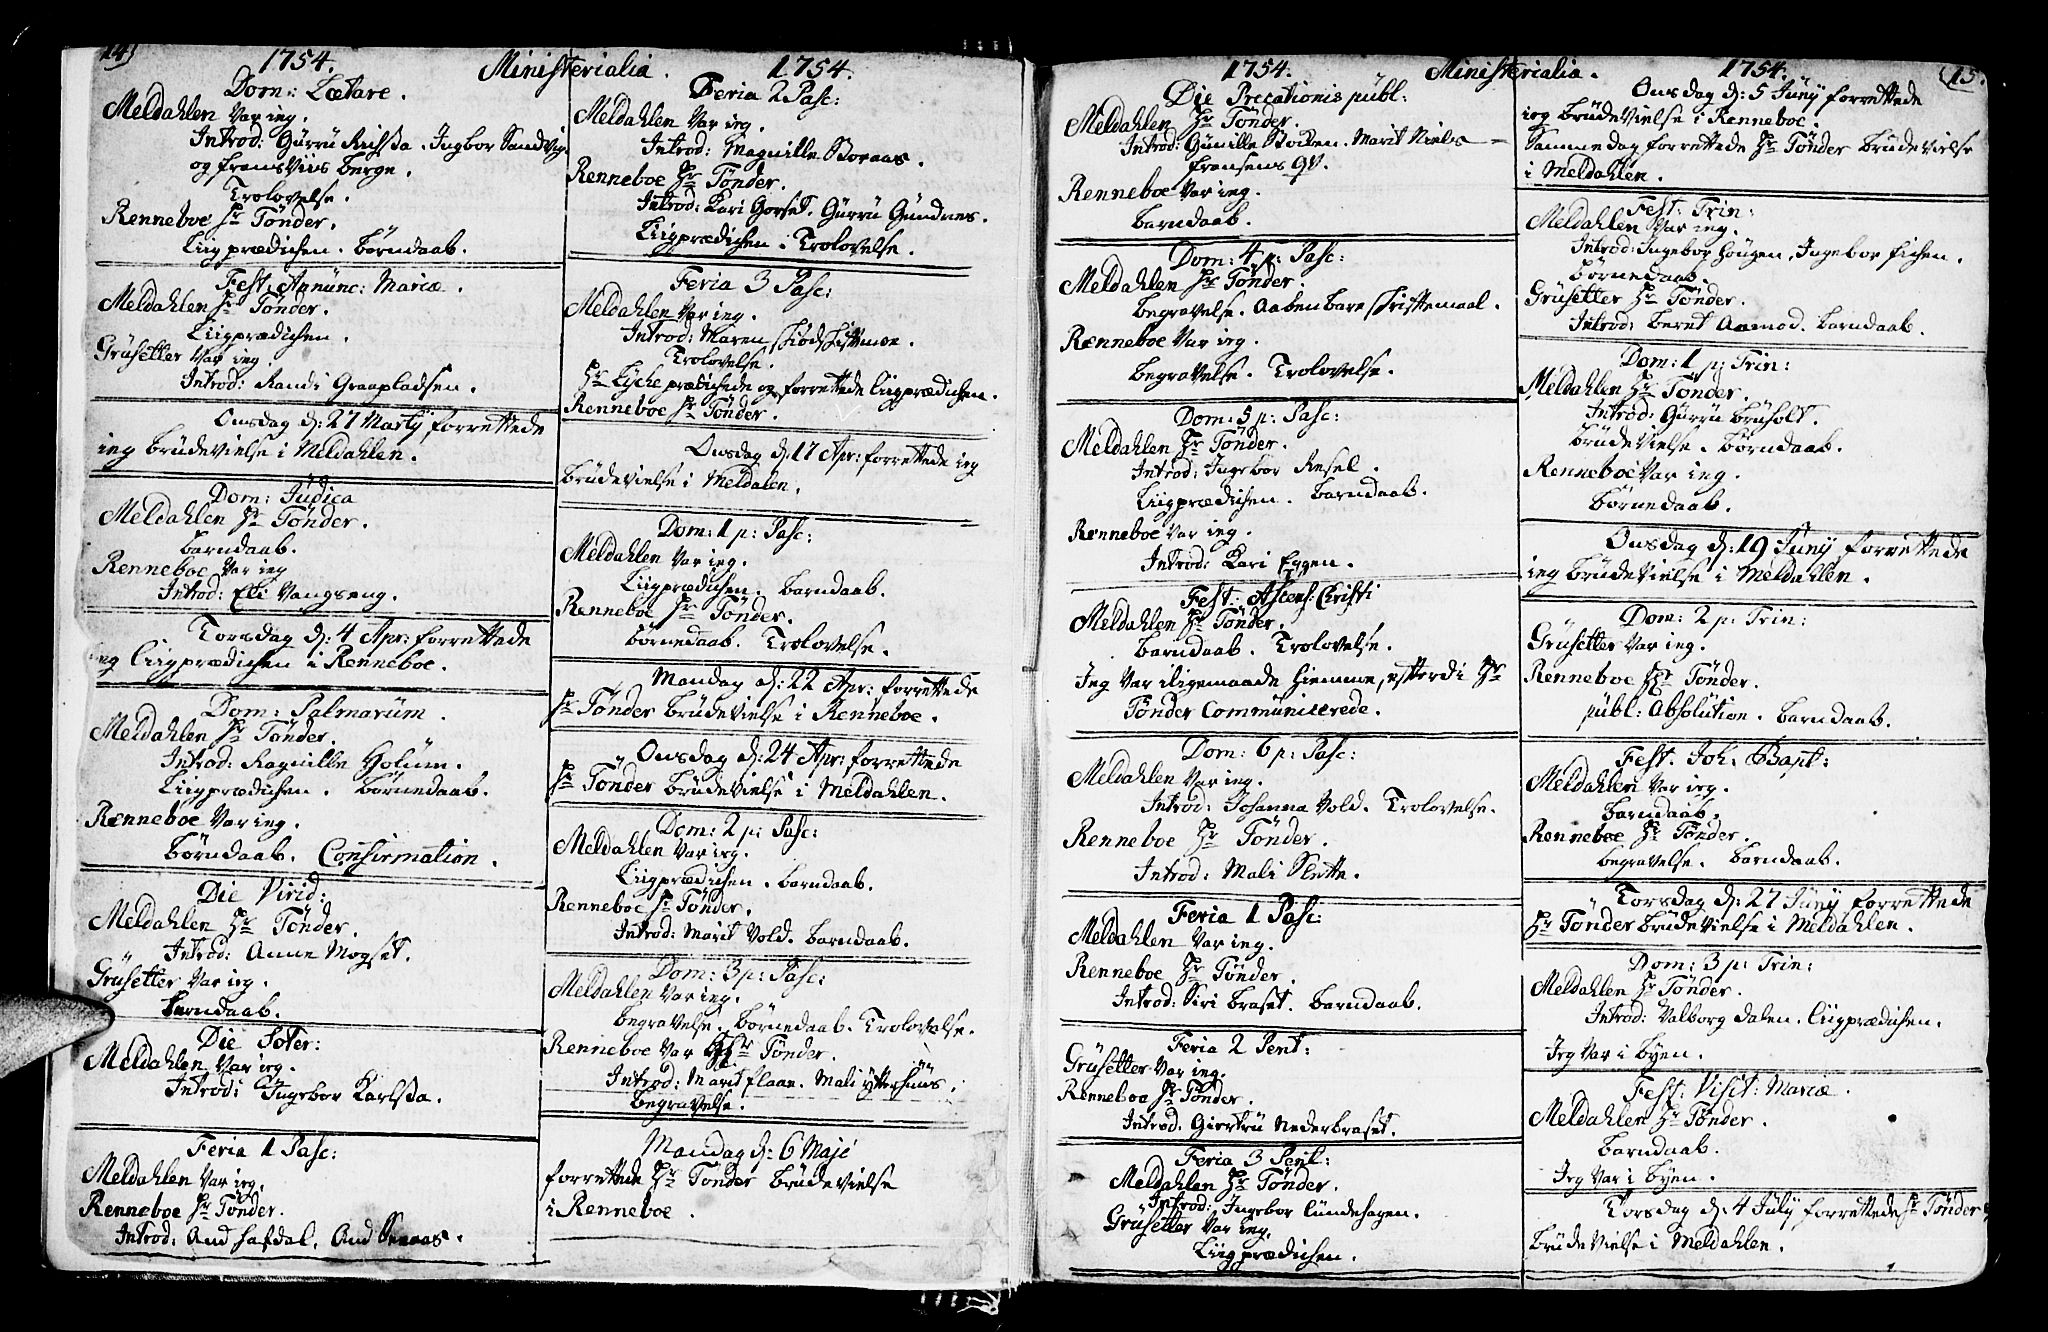 14)
1754. Ministerialia. 1754.
Dom: Lætare.
Meldahlen Var ieg.
Introd: Gurru Reissa. Ingbor Sandvig.
og Berge.
Trolovelse.
Renneboe Hr Tönder.
Liigprædichen. Börndaab.
Fest: Anunc: Mariæ.
Meldahlen Hr Tönder.
Liigprædichen.
Grüsetter Var ieg.
Introd: Randi Graapladsen.
Onsdag d: 27 Martij forrettede
ieg brüdevielse i Meldahlen.
Dom: Jüdica
Meldahlen Hr Tönder.
barndaab.
Renneboe Var ieg
Introd: Eli Vangseng.
Torsdag d: 4 Apr: forrettede
ieg Liigprædichen i Renneboe.
Dom: Palmarüm.
Meldahlen Hr Tönder.
Introd: Ragnille Holüm.
Liigprædichen. Börnedaab.
Renneboe Var ieg.
börndaab. Confirmation.
Die Virid:
Meldahlen Hr Tönder.
Introd: Anne Mogset.
Grüsetter Var ieg.
barndaab.
Die Soter:
Meldahlen Var ieg.
Introd: Ingebor Karlssa.
Feria 1 Pasc:
Meldahlen Var ieg.
Renneboe Hr Tönder.
Introd: And Hafdal. And
Feria 2 Pasc:
Meldahlen Var ieg.
Introd: Magnille Boraas.
Renneboe Hr Tönder.
Introd: Kari Gorset. Gürrü Gündnes.
Liigprædichen. Trolovelse.
Feria 3 Pasc:
Meldahlen Var ieg.
Introd: Maren
Trolovelse.
Hr Lyche prædichede og forrettede Liigprædichen.
Renneboe Hr Tönder.
Onsdag d: 17 Apr: forrettede ieg
brüdevielse i Meldalen.
Dom: 1 p: Pasc:
Meldahlen Var ieg.
Liigprædichen. barndaab.
Renneboe Hr Tönder.
börnedaab. Trolovelse.
Mandag d: 22 Apr: forrettede
Hr Tönder brüdevielse i Renneboe.
Onsdag d: 24 Apr: forrettede
Hr Tönder brüdevielse i Meldahlen.
Dom: 2 p: Pasc:
Meldahlen Var ieg.
Liigprædichen. barndaab.
Renneboe Hr Tönder.
Introd: Marit Vold. barndaab.
Dom: 3 p: Pasc:
Meldahlen Var ieg.
begravelse. börnedaab. Trolovelse.
Renneboe Var Hr Tönder.
Introd: Marit flaan. Mali ytterhüüs.
begravelse.
Mandag d: 6 Maji
forrettede Hr Tönder brüdevielse
i Renneboe.
1754. Ministerialia. 1754. (15.
Die Precationis publ:
Meldahlen Hr Tönder.
Introd: Günille Marit Niels
fransens qv.
Renneboe Var ieg.
barndaab.
Dom: 4 p: Pasc:
Meldahlen Hr Tönder.
begravelse. Aabenbare skriftemaal.
Renneboe Var ieg.
begravelse. Trolovelse.
Dom: 5 p: Pasc:
Meldahlen Hr Tönder.
Introd: Ingebor Resel.
Liigprædichen. barndaab.
Renneboe Var ieg.
Introd: Kari Eggen.
Fest: Ascens: Christi
Meldahlen Hr Tönder.
barndaab. Trolovelse.
Jeg Var iligemaade hiemme, efterdi Hr
Tönder Communicerede.
Dom: 6 p: Pasc:
Meldahlen Var ieg.
Introd: Johanna Vold. Trolovelse.
Renneboe Hr Tönder.
Introd: Mali Slette.
Feria 1 Pasc:
Meldahlen Var ieg.
Renneboe Hr Tönder.
Introd: Siri Braset. barndaab.
Feria 2 Pent:
Grüsetter Var ieg.
Renneboe Hr Tönder.
Introd: Giertrü Nederbraset.
Feria 3 Pent:
Meldahlen Hr Tönder.
Introd: Ingebor Lündehagen.
Grüsetter Var ieg.
Liigprædichen.
Onsdag d: 5 Juny forrettede
ieg brüdevielse i Renneboe.
Samme dag forrettede Hr Tönder brüdevielse
i Meldahlen.
Fest: Trin:
Meldahlen Var ieg.
Introd: Ingebor Hougen. Ingebor
börnedaab.
Grüsetter Hr Tönder.
Introd: Beret Aamod. barndaab.
Dom: 1 p: Trin:
Meldahlen Hr Tönder.
Introd: Gürrü Brüholt.
brüdevielse. börndaab.
Renneboe Var ieg.
börnedaab.
Onsdag d: 19 Juny forrettede
ieg brüdevielse i Meldahlen.
Dom: 2 p: Trin:
Grüsetter Var ieg.
Renneboe Hr Tönder.
publ: Absolution. barndaab.
Fest. Joh: Bapt:
Meldahlen Var ieg.
barndaab.
Renneboe Hr Tönder.
begravelse. barndaab.
Torsdag d: 27 Juny forrettede
Hr Tönder brüdevielse i Meldahlen.
Dom: 3 p: Trin:
Meldahlen Hr Tönder.
Introd: Valborg dalen. Liigprædichen.
Jeg Var i byen.
Fest: Visit: Mariæ.
Meldahlen Hr Tönder.
barndaab.
Jeg Var i byen.
Torsdag d: 4 July forrettede Hr Tönder
brüdevielse i Meldahlen.